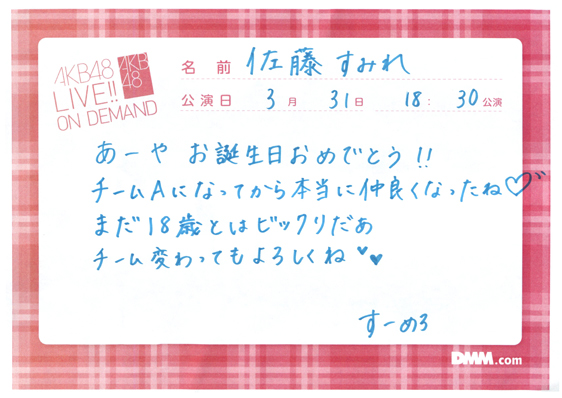 AKB48
LIVE!!
ON DEMAND
AKB
48
名前 佐藤すみれ
公演日 3月 31日 18:30公演
あーや お誕生日おめでとう!!
チームAになってから本当に仲良くなったね♡
まだ18歳とはビックリだあ
チーム変わってもよろしくね♥♥
すーめろ
DMM.com